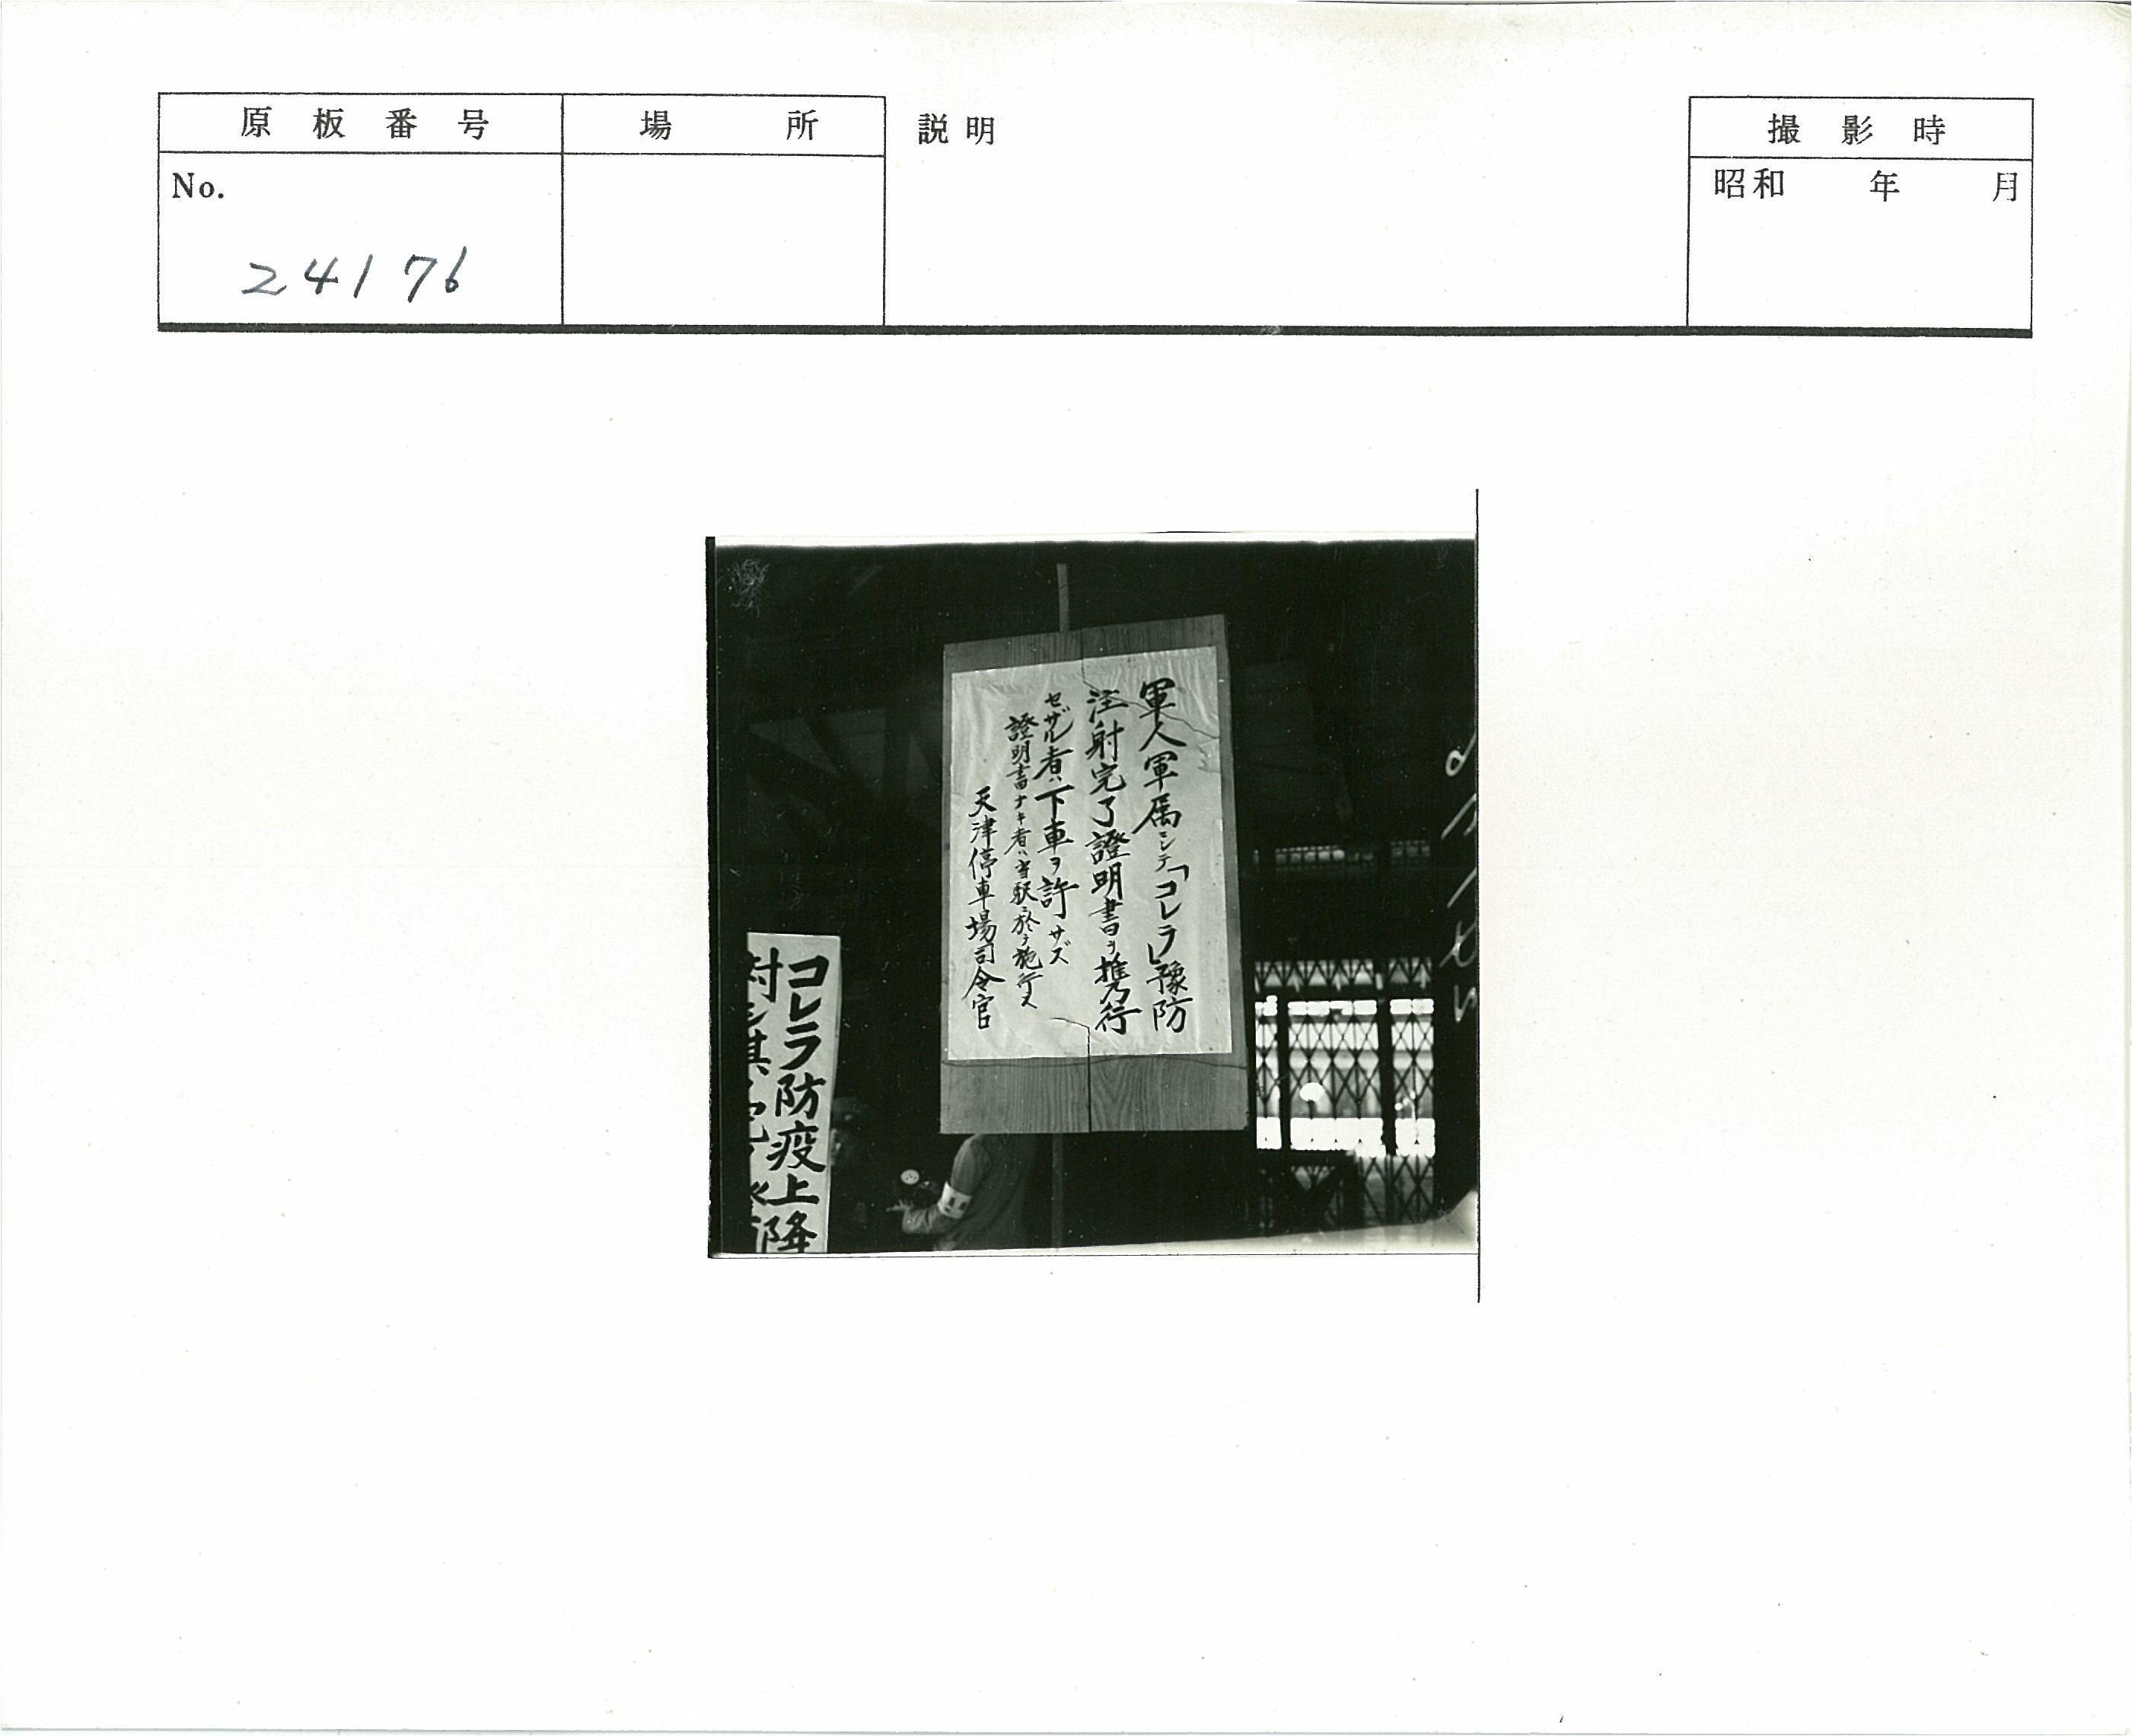 原板番号
場所
説明
撮影時
No.
24176
昭和 年 月
軍人軍属ニシテ「コレラ」豫防
注射完了證明書ヲ携行
セザル者ハ下車ヲ許サズ
證明書ナキ者ハ当駅ニ於テ施行ス
天津停車場司令官
コレラ防疫上降